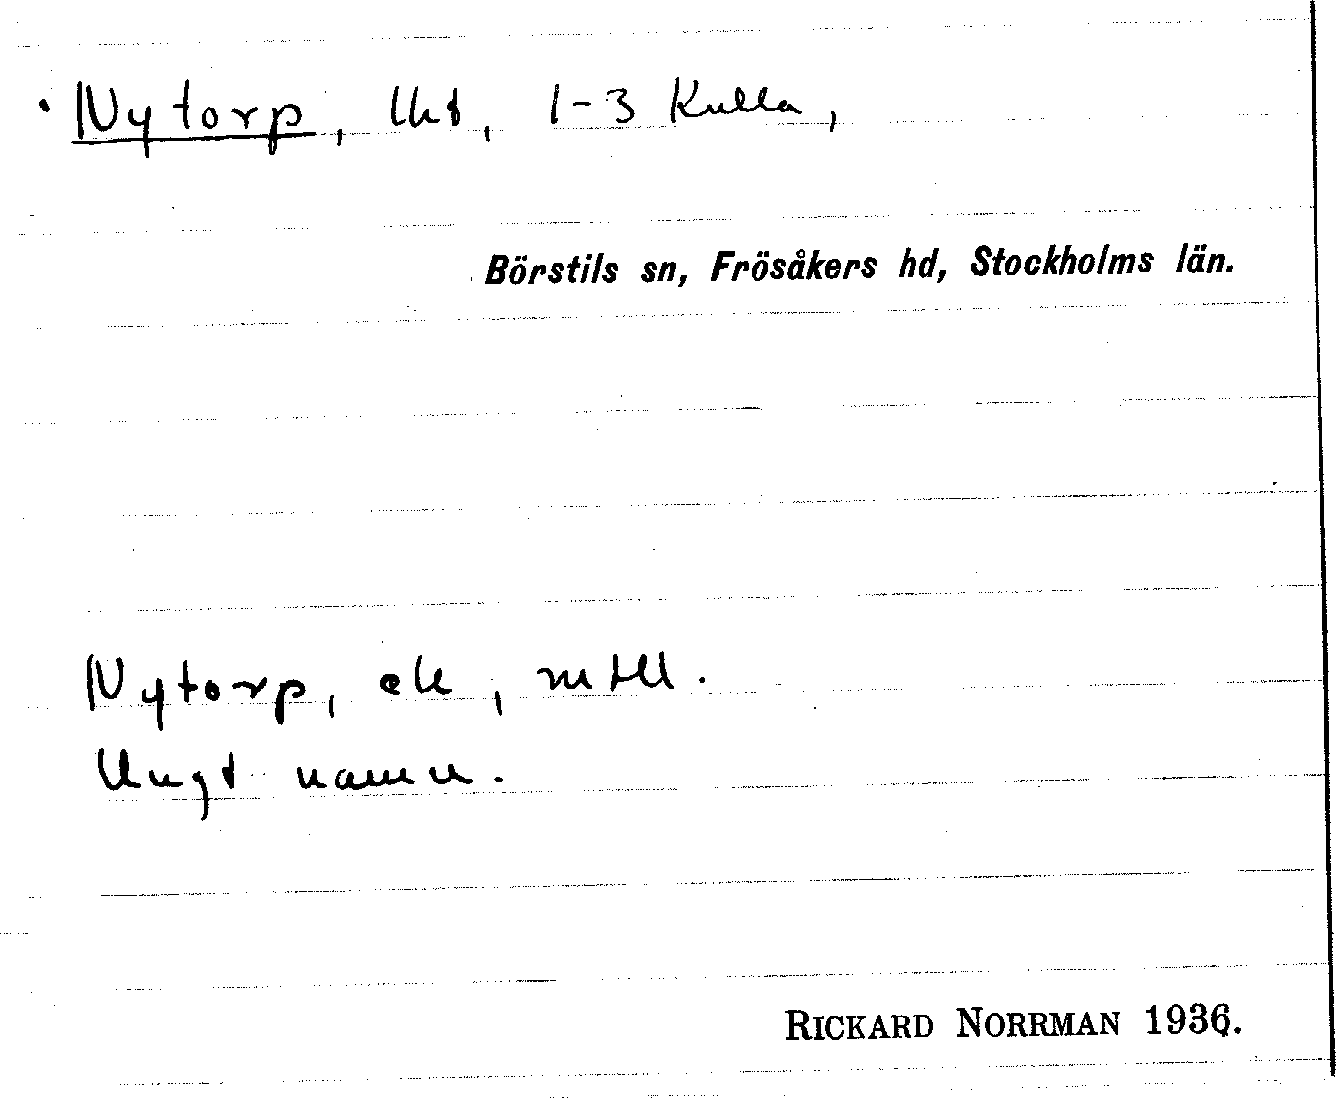 Nytorp, lht, 1-3 Kulla,
Börstils sn, Frösåkers hd, Stockholms län.
Nytorp, ek, mtll.
Ungt namn.
RICKARD NORRMAN 1936.